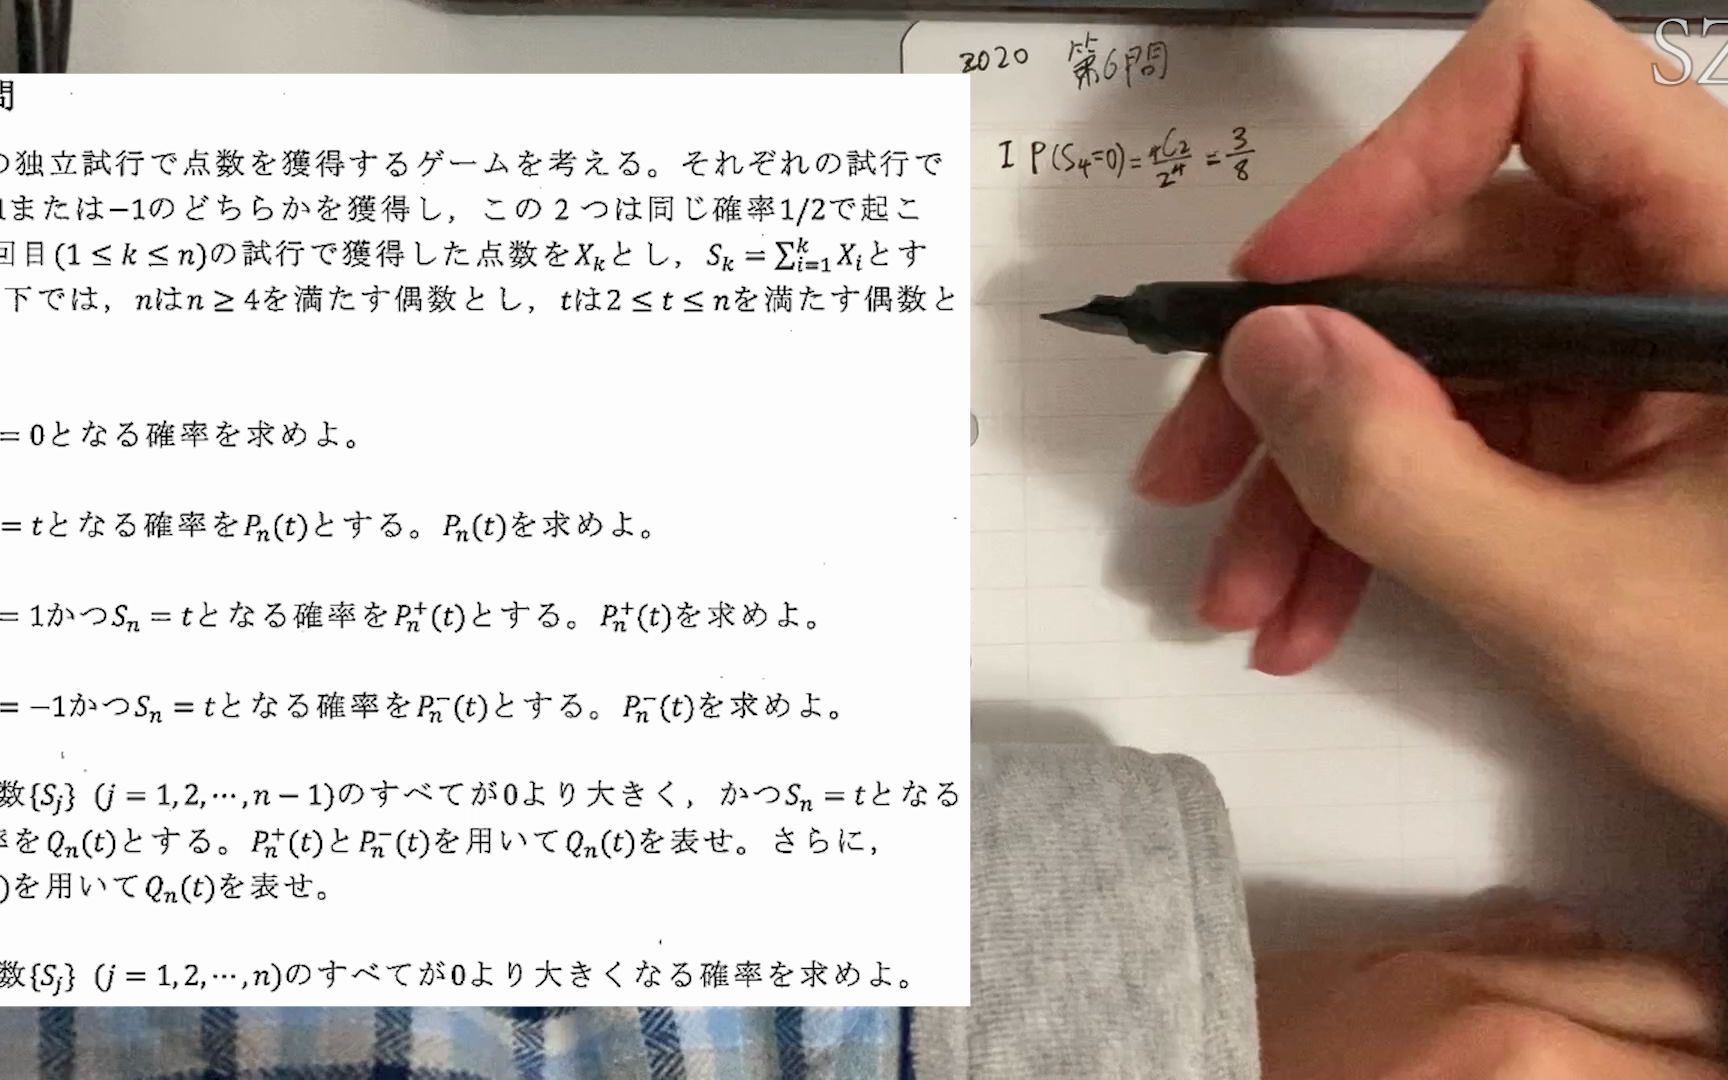 SZ
2020 第6問
I P(S₄=0) = ₄C₂/2⁴ = 3/8
問
の独立試行で点数を獲得するゲームを考える。それぞれの試行で
1または−1のどちらかを獲得し，この2つは同じ確率1/2で起こ
回目(1 ≤ k ≤ n)の試行で獲得した点数をX_kとし，S_k = ∑_{i=1}^k X_iとす
下では，nはn ≥ 4を満たす偶数とし，tは2 ≤ t ≤ nを満たす偶数と
= 0となる確率を求めよ。
= tとなる確率をP_n(t)とする。P_n(t)を求めよ。
= 1かつS_n = tとなる確率をP_n^+(t)とする。P_n^+(t)を求めよ。
= −1かつS_n = tとなる確率をP_n^−(t)とする。P_n^−(t)を求めよ。
数{S_j} (j = 1, 2, ⋯, n − 1)のすべてが0より大きく，かつS_n = tとなる
率をQ_n(t)とする。P_n^+(t)とP_n^−(t)を用いてQ_n(t)を表せ。さらに，
)を用いてQ_n(t)を表せ。
数{S_j} (j = 1, 2, ⋯, n)のすべてが0より大きくなる確率を求めよ。